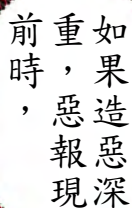 如果造惡深
重，惡報現
前時，